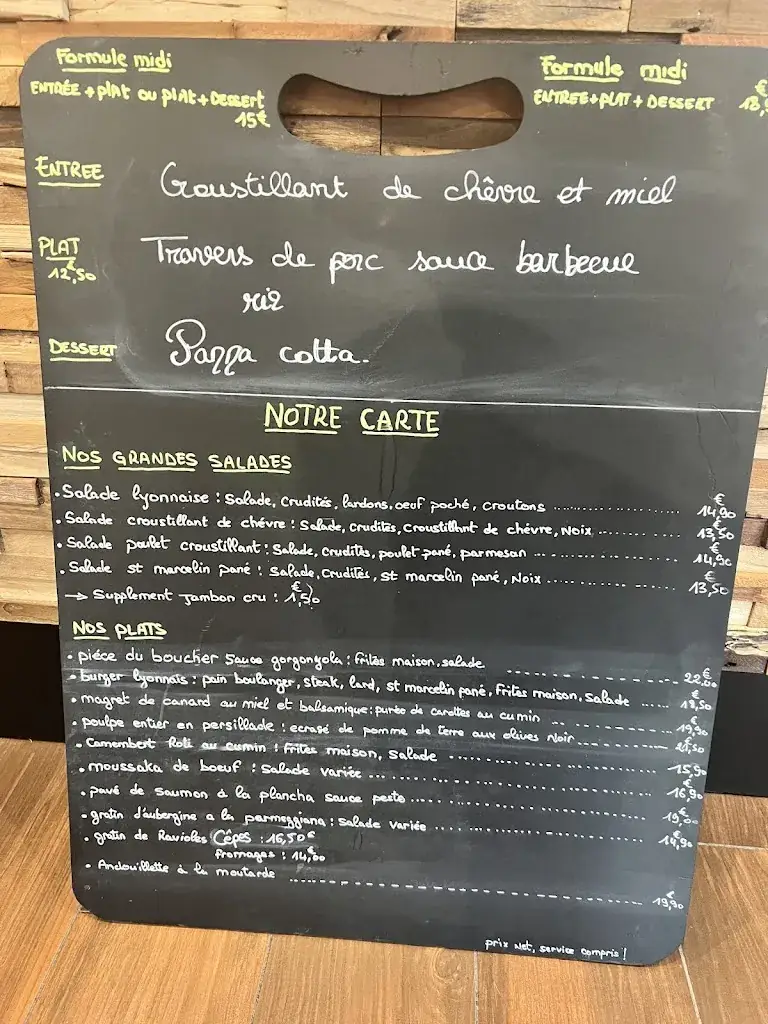 Formule midi
ENTRÉE + plAt ou plAt + Dessert
15€
Formule midi
ENTREE + PLAT + DESSERT
ENTREE
Croustillant de chêvre et miel
PLAT
12,50€
Travers de porc sauce barbecue
riz
DESSERT
Panna cotta.
NOTRE CARTE
NOS GRANDES SALADES
• Salade lyonnaise : Salade, crudités, lardons, oeuf poché, croutons ........ 14,90€
• Salade croustillant de chévre : Salade, crudités, croustillant de chévre, Noix ........ 13,50€
• Salade poulet croustillant : Salade, crudités, poulet pané, parmesan ........ 14,90€
• Salade st marcelin pané : Salade, crudités, st marcelin pané, Noix ........ 13,50€
→ Supplement jambon cru : 1,50€
NOS PLATS
• piéce du boucher Sauce gorgonzola : frites maison, salade ........ 22,00€
• burger lyonnais : pain boulanger, steak, lard, st marcelin pané, frites maison, Salade ........ 18,50€
• magret de canard au miel et balsamique : purée de carottes au cumin ........ 19,90€
• poulpe entier en persillade : ecrasé de pomme de terre aux olives Noir ........
• Camembert Roti au cumin : frites maison, Salade ........ 15,90€
• moussaka de boeuf : Salade variée ........ 16,90€
• pavé de saumon à la plancha sauce pesto ........ 19,00€
• gratin d'aubergine a la parmeggiana : Salade variée ........ 14,90€
• gratin de Ravioles Cêpes : 16,50€
fromages : 14,00€
• Andouillette à la moutarde ........ 19,90€
prix Net, service compris !